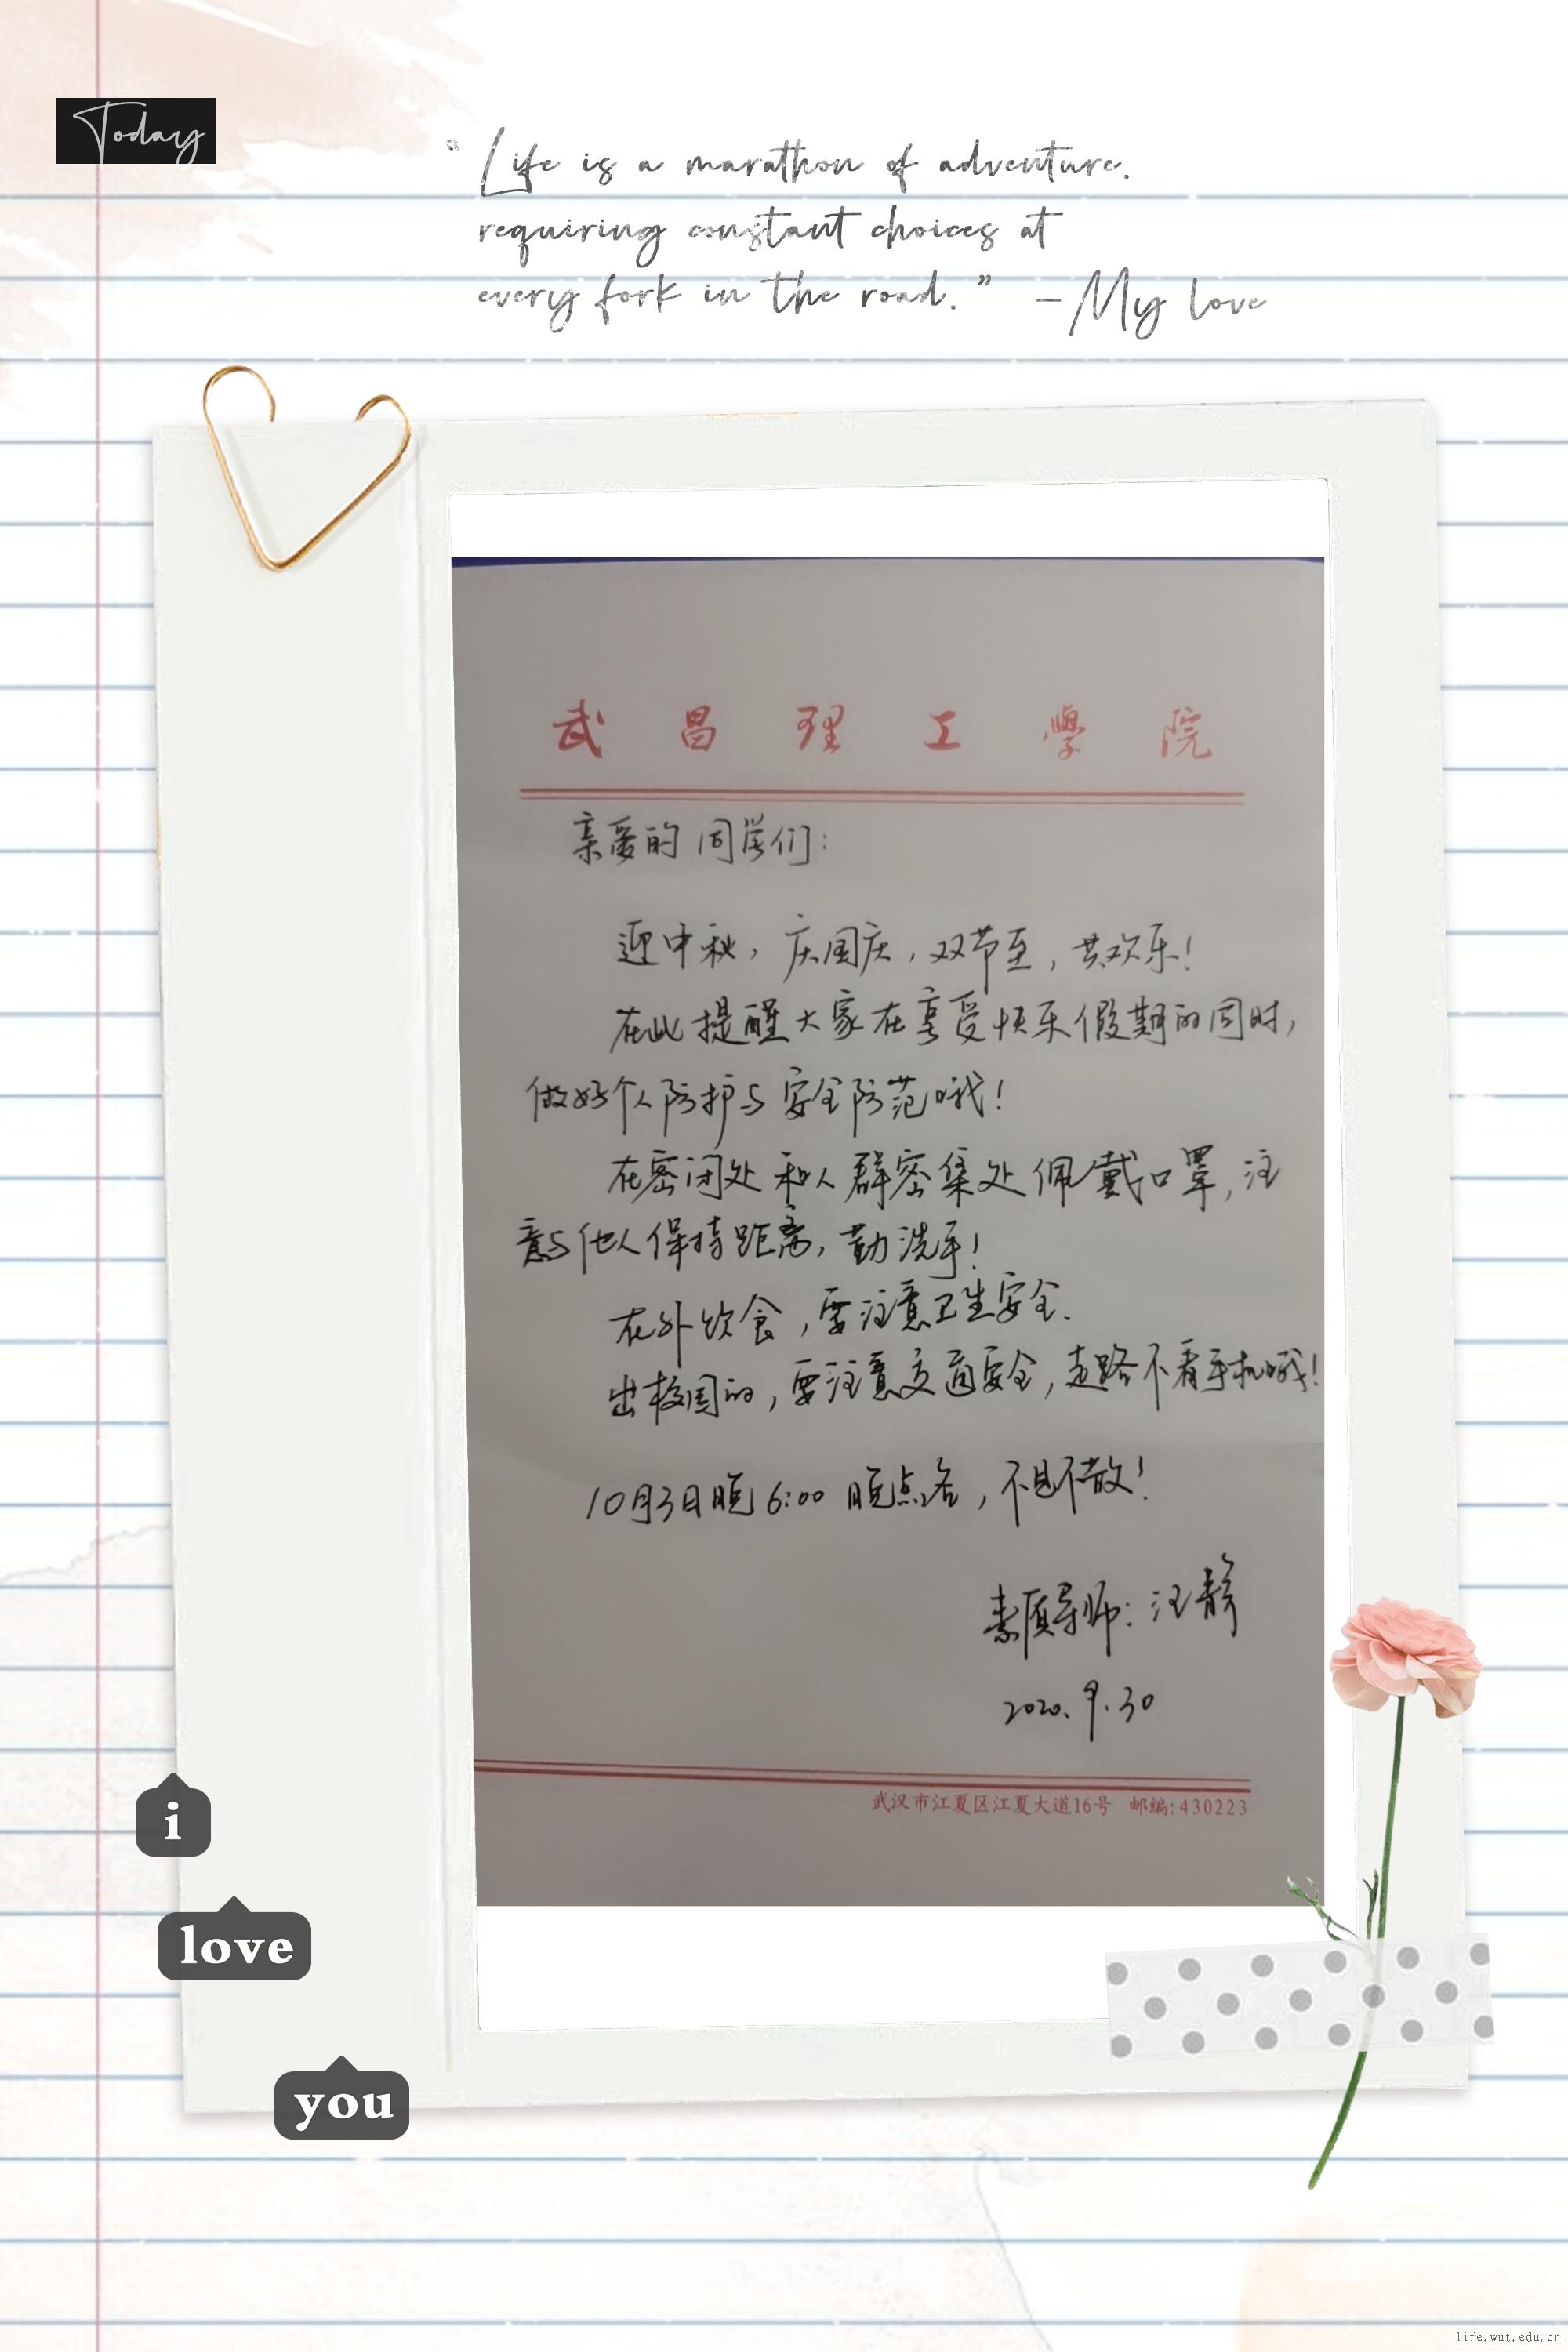 Today
“Life is a marathon of adventure.
requiring constant choices at
every fork in the road.” -My love
武昌理工學院
亲爱的同学们：
迎中秋，庆国庆，双节至，共欢乐！
在此提醒大家在享受快乐假期的同时，
做好个人防护与安全防范哦！
在密闭处和人群密集处佩戴口罩，注
意与他人保持距离，勤洗手！
在外饮食，要注意卫生安全.
出校园的，要注意交通安全，走路不看手机哦！
10月3日晚6:00 晚点名，不见不散！
素质导师：汪静
2020.9.30
武汉市江夏区江夏大道16号 邮编:430223
i
love
you
life.wut.edu.cn